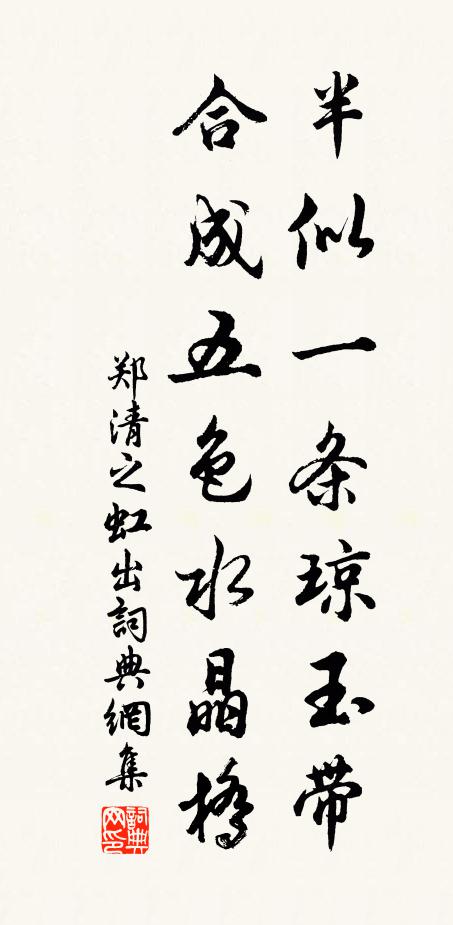 半似一条琼玉带
合成五色水晶橋
郑清之虹出詞典網集
詞典网印